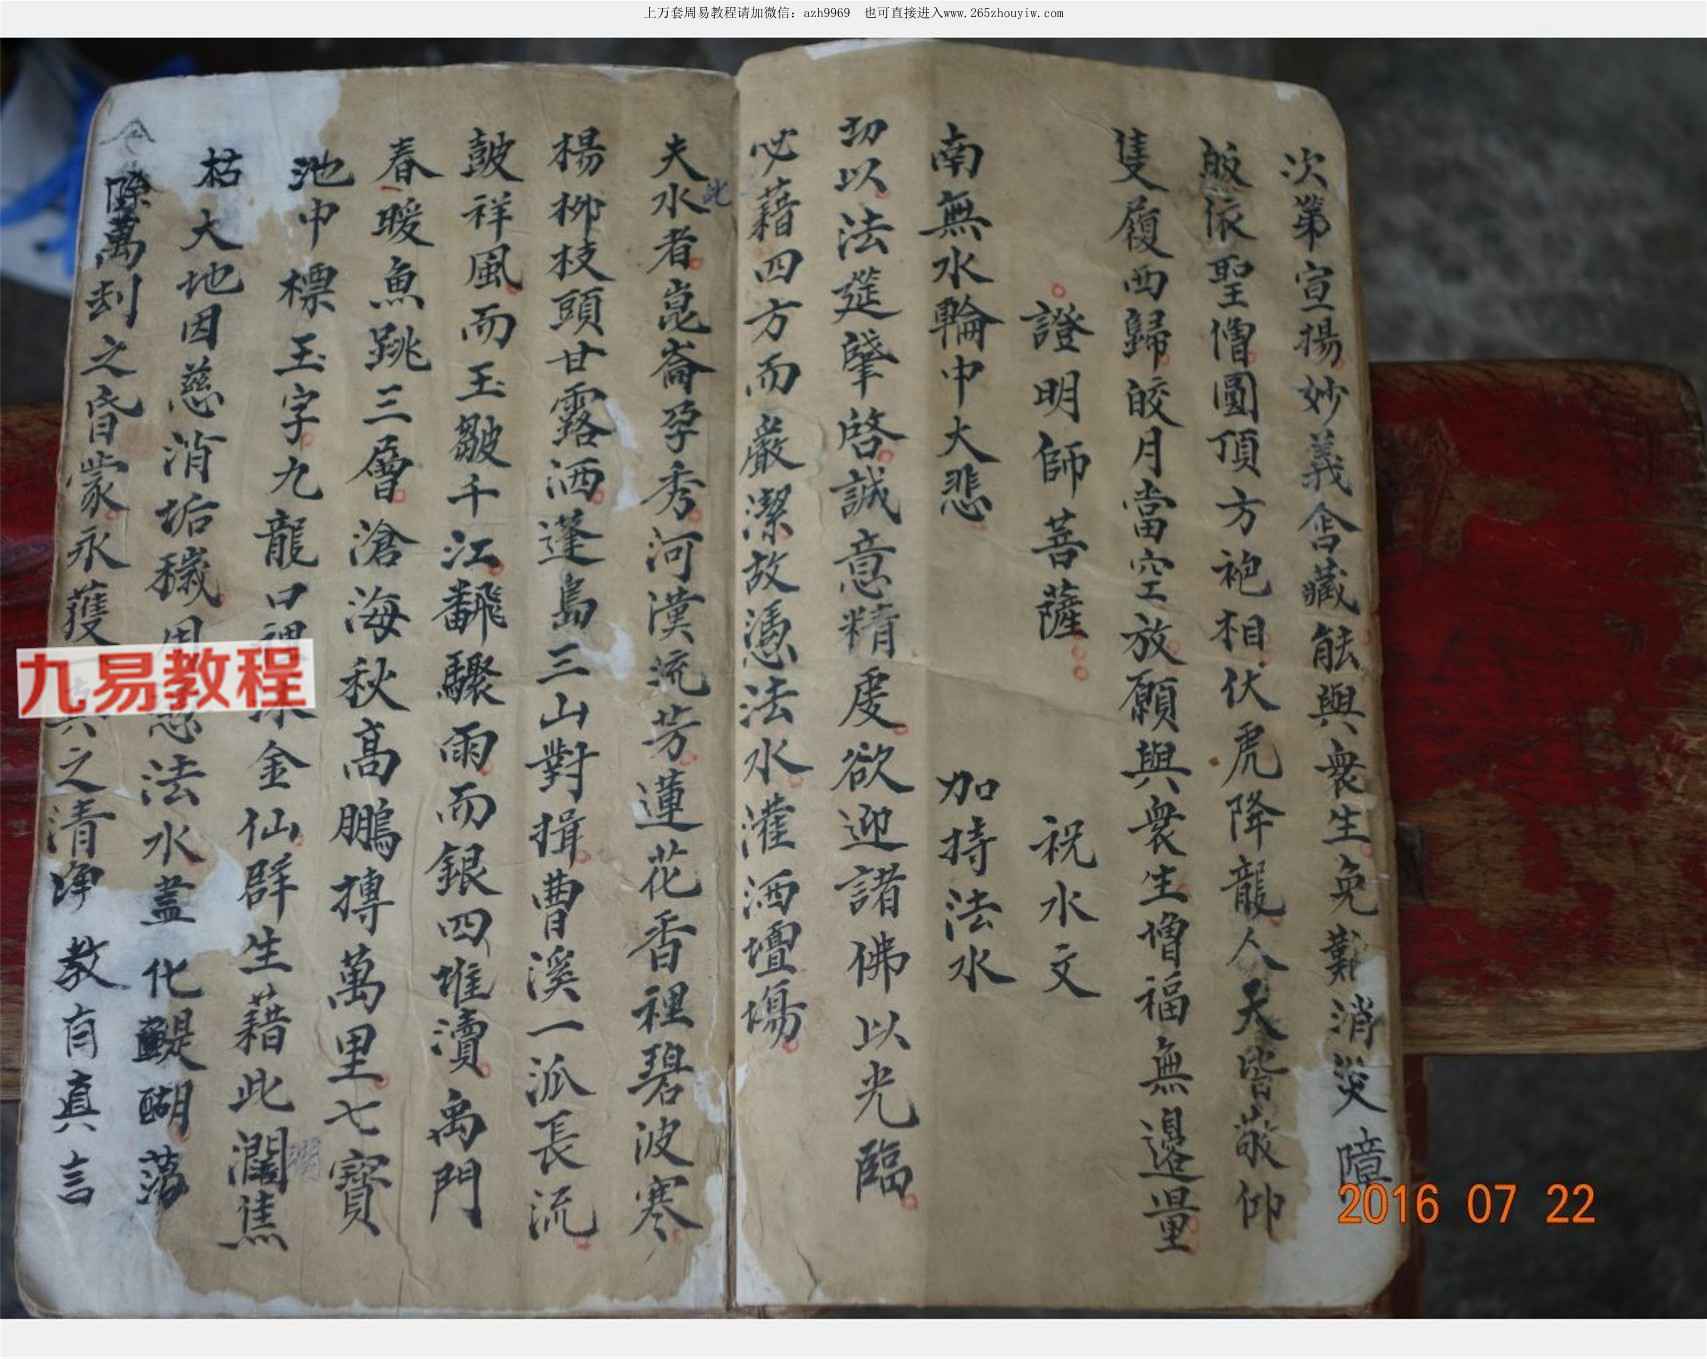 上万套周易教程请加微信：azh9969 也可直接进入www.265zhouyiw.com
次第宣揚妙義含藏能與衆生免難消災障
皈依聖僧圓頂方袍相伏虎降龍人天皆敬仰
隻履西歸皎月當空放願與衆生增福無邊量
證明師菩薩 祝水文
南無水輪中大悲 加持法水
切以法筵肇啓誠意精虔欲迎諸佛以光臨
必藉四方而嚴潔故憑法水灌洒壇場
夫此水者崑崙孕秀河漢流芳蓮花香裡碧波寒
楊柳枝頭甘露洒蓬島三山對揖曹溪一派長流
皷祥風而玉皺千江飜驟雨而銀四堆瀆禹門
春暖魚跳三層滄海秋高鵬摶萬里七寶
池中標玉字九龍口裡金仙群生藉此潤焦
枯大地因慈消垢穢法水蓋化醍醐蕩
除萬刦之昏蒙永獲之清淨教有真言
九易教程
2016 07 22